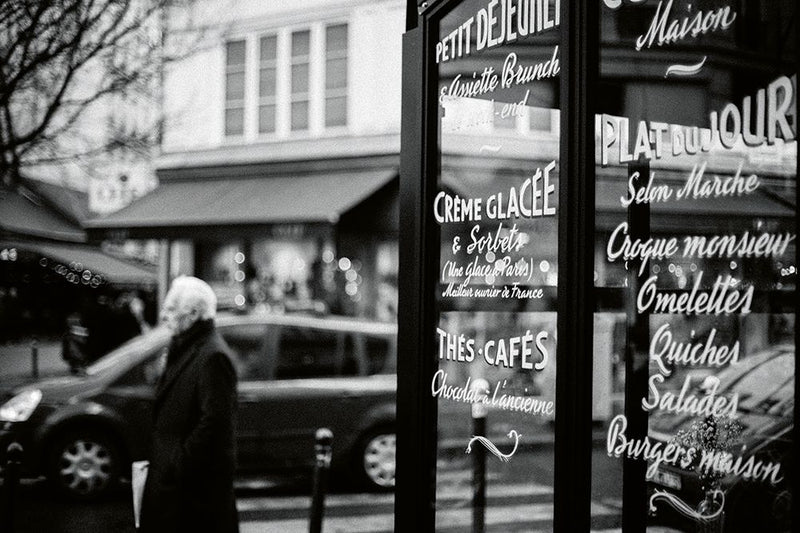 PETIT DÉJEUNER
& Assiette Brunch
CRÈME GLACÉE
& Sorbets
(Une glace à Paris)
Meilleur ouvrier de France
THÉS · CAFÉS
Chocolat à l'ancienne
Maison
PLAT DU JOUR
Selon Marche
Croque monsieur
Omelettes
Quiches
Salades
Burgers maison